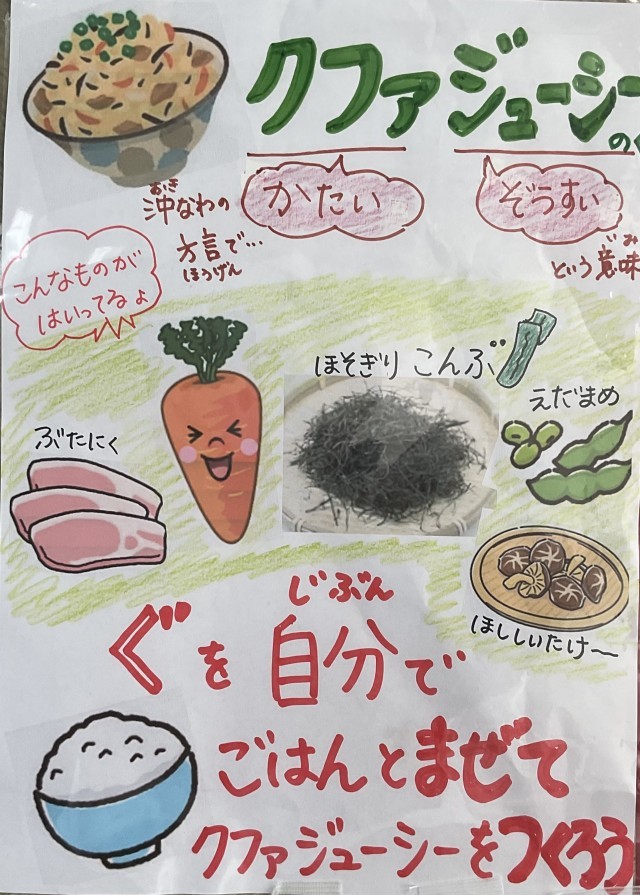 クファジューシー
の
かたい
ぞうすい
おき
沖なわの
方言で…
ほうげん
という意味
いみ
こんなものが
はいってるよ
ほそぎり こんぶ
えだまめ
ぶたにく
ほししいたけ〜
じぶん
ぐを自分で
ごはんとまぜて
クファジューシーをつくろう